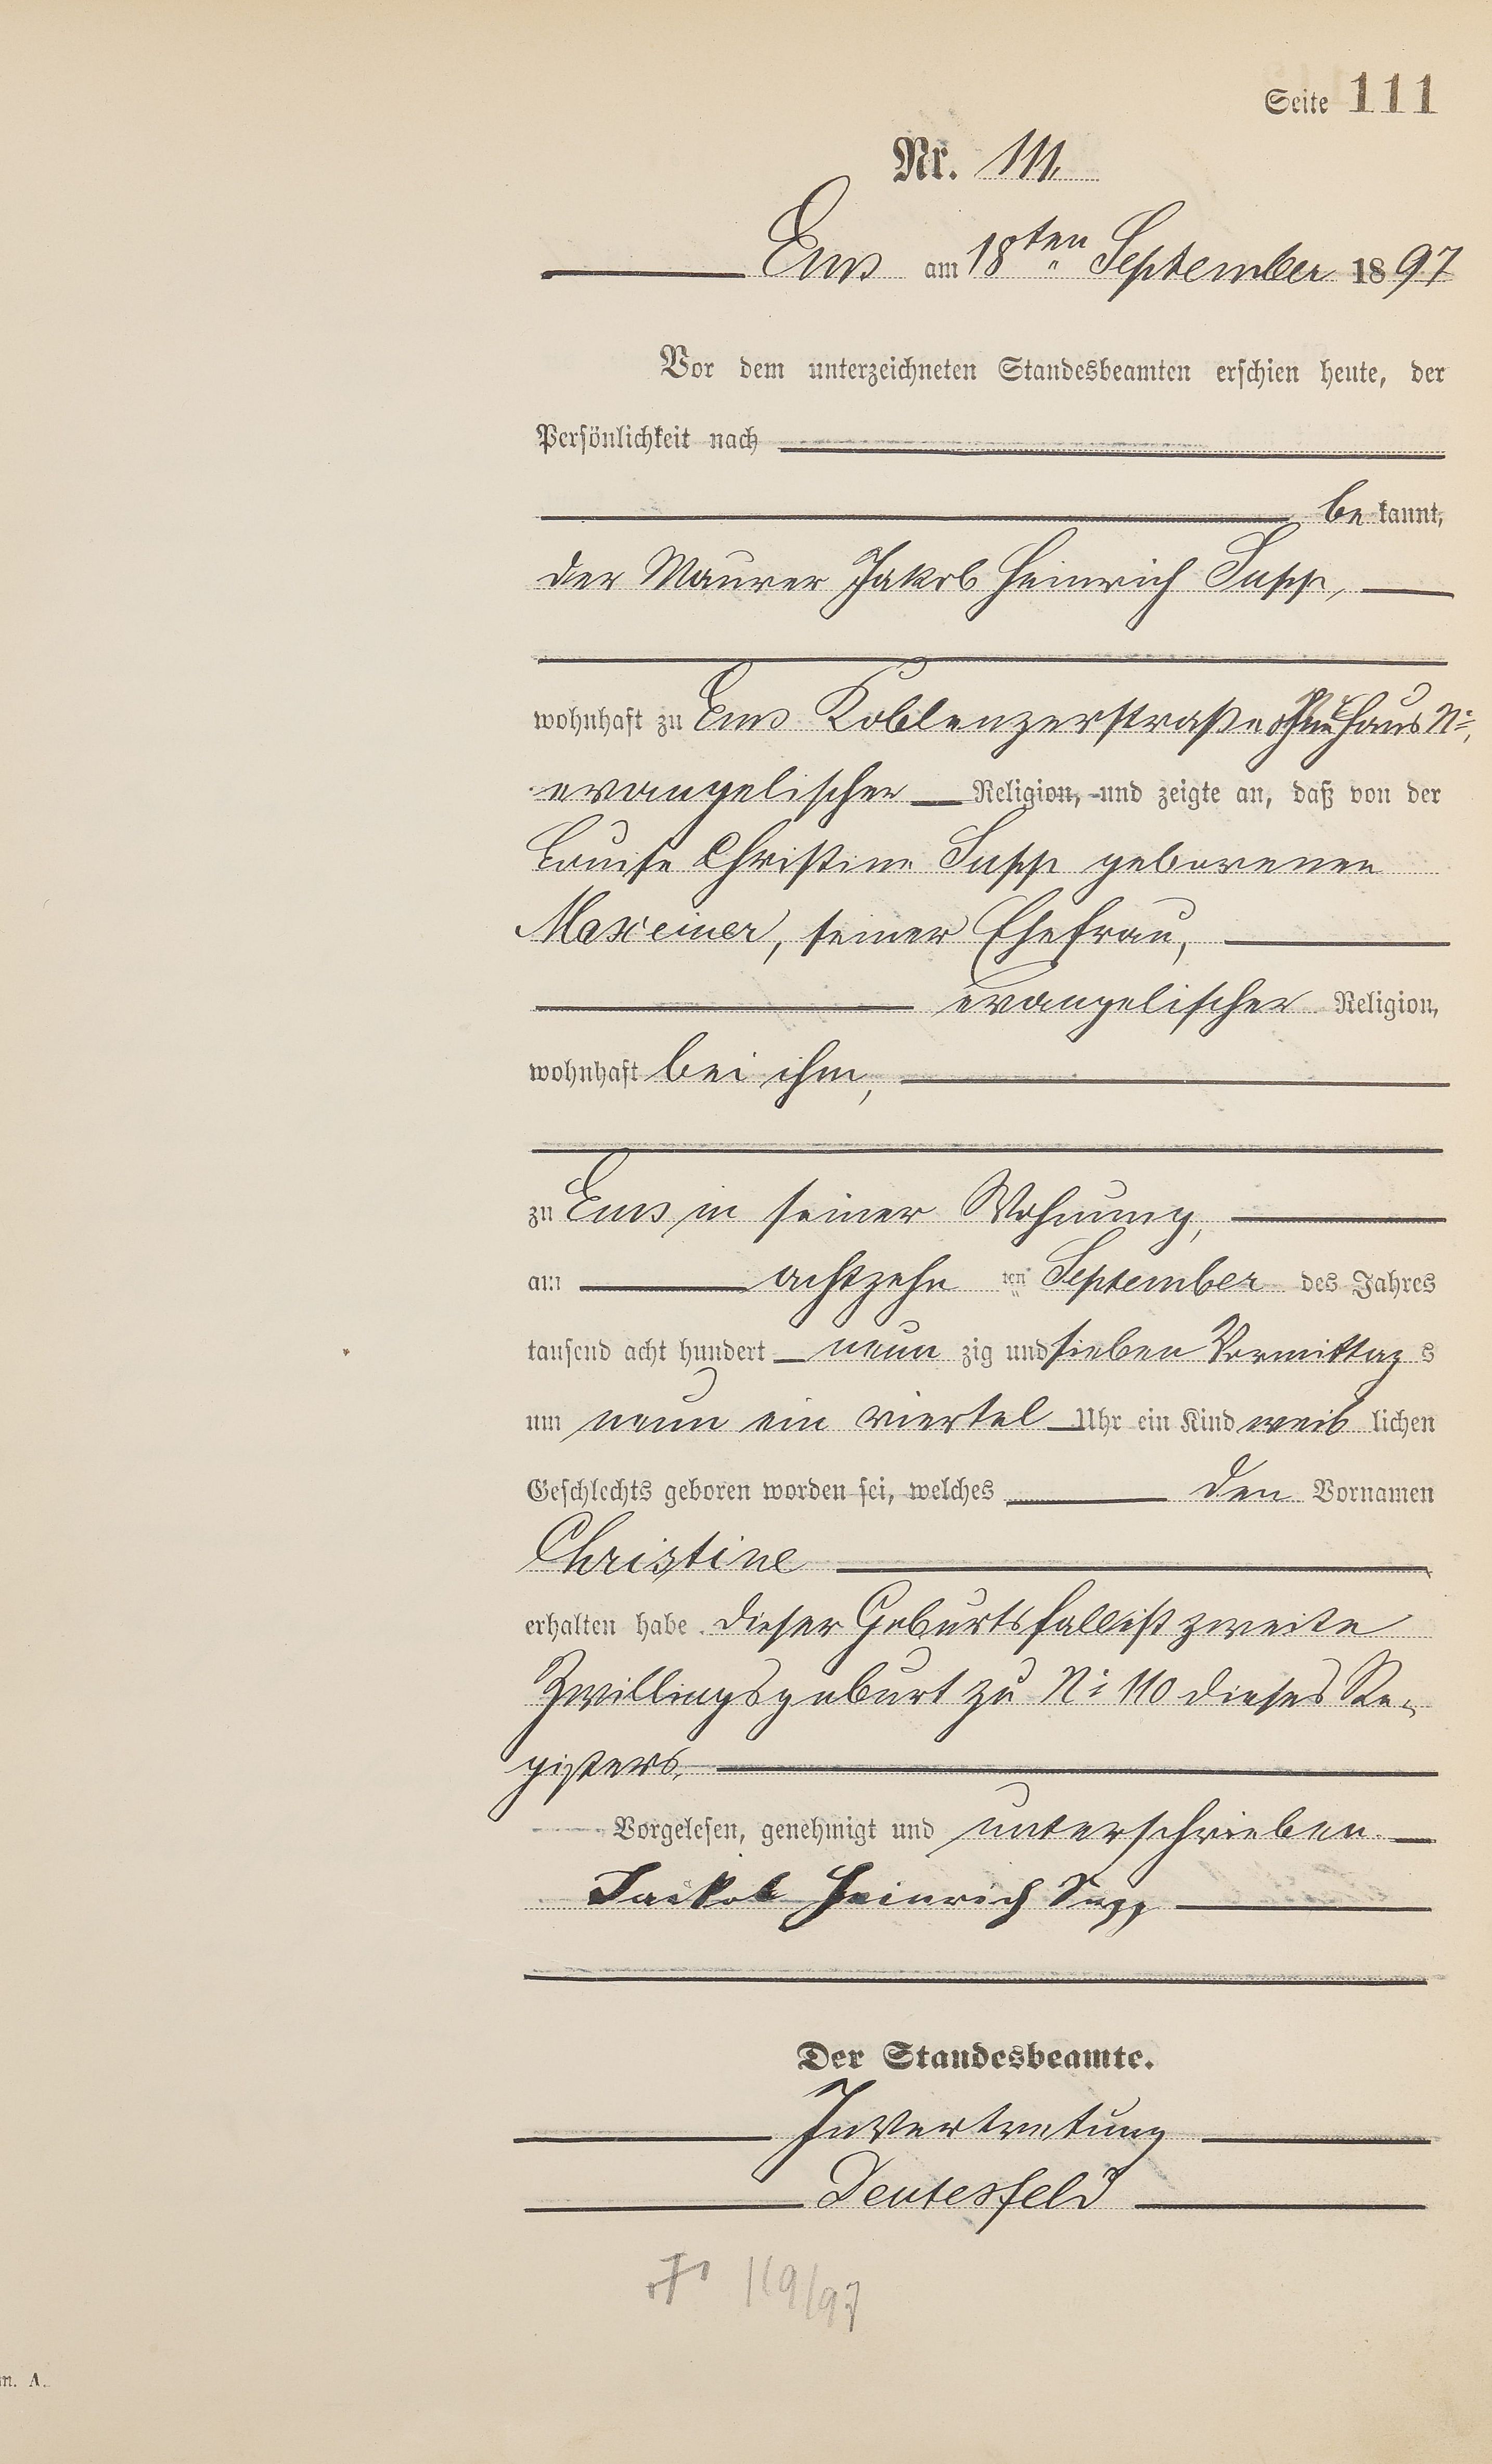 Seite 111
Nr. 111.
Ems am 18ten September 1897
Vor dem unterzeichneten Standesbeamten erschien heute, der
Persönlichkeit nach
be kannt,
der Maurer Jakob Heinrich Supp,
wohnhaft zu Ems Koblenzerstraße haus No.,
evangelischer Religion, und zeigte an, daß von der
Louise Christine Supp geborenen
Maxeiner, seiner Ehefrau,
evangelischer Religion,
wohnhaft bei ihm,
zu Ems in seiner Wohnung,
am achtzehn ten September des Jahres
tausend acht hundert neun zig und sieben Vormittag s
um neun ein viertel Uhr ein Kind weib lichen
Geschlechts geboren worden sei, welches den Vornamen
Christine
erhalten habe. Dieser Geburtsfall ist zweite
Zwillingsgeburt zu No 110 dieses Re-
gisters.
Vorgelesen, genehmigt und unterschrieben.
Jackob Heinrich Supp
Der Standesbeamte.
In Vertretung
Deutesfeld
119/97
m. A.